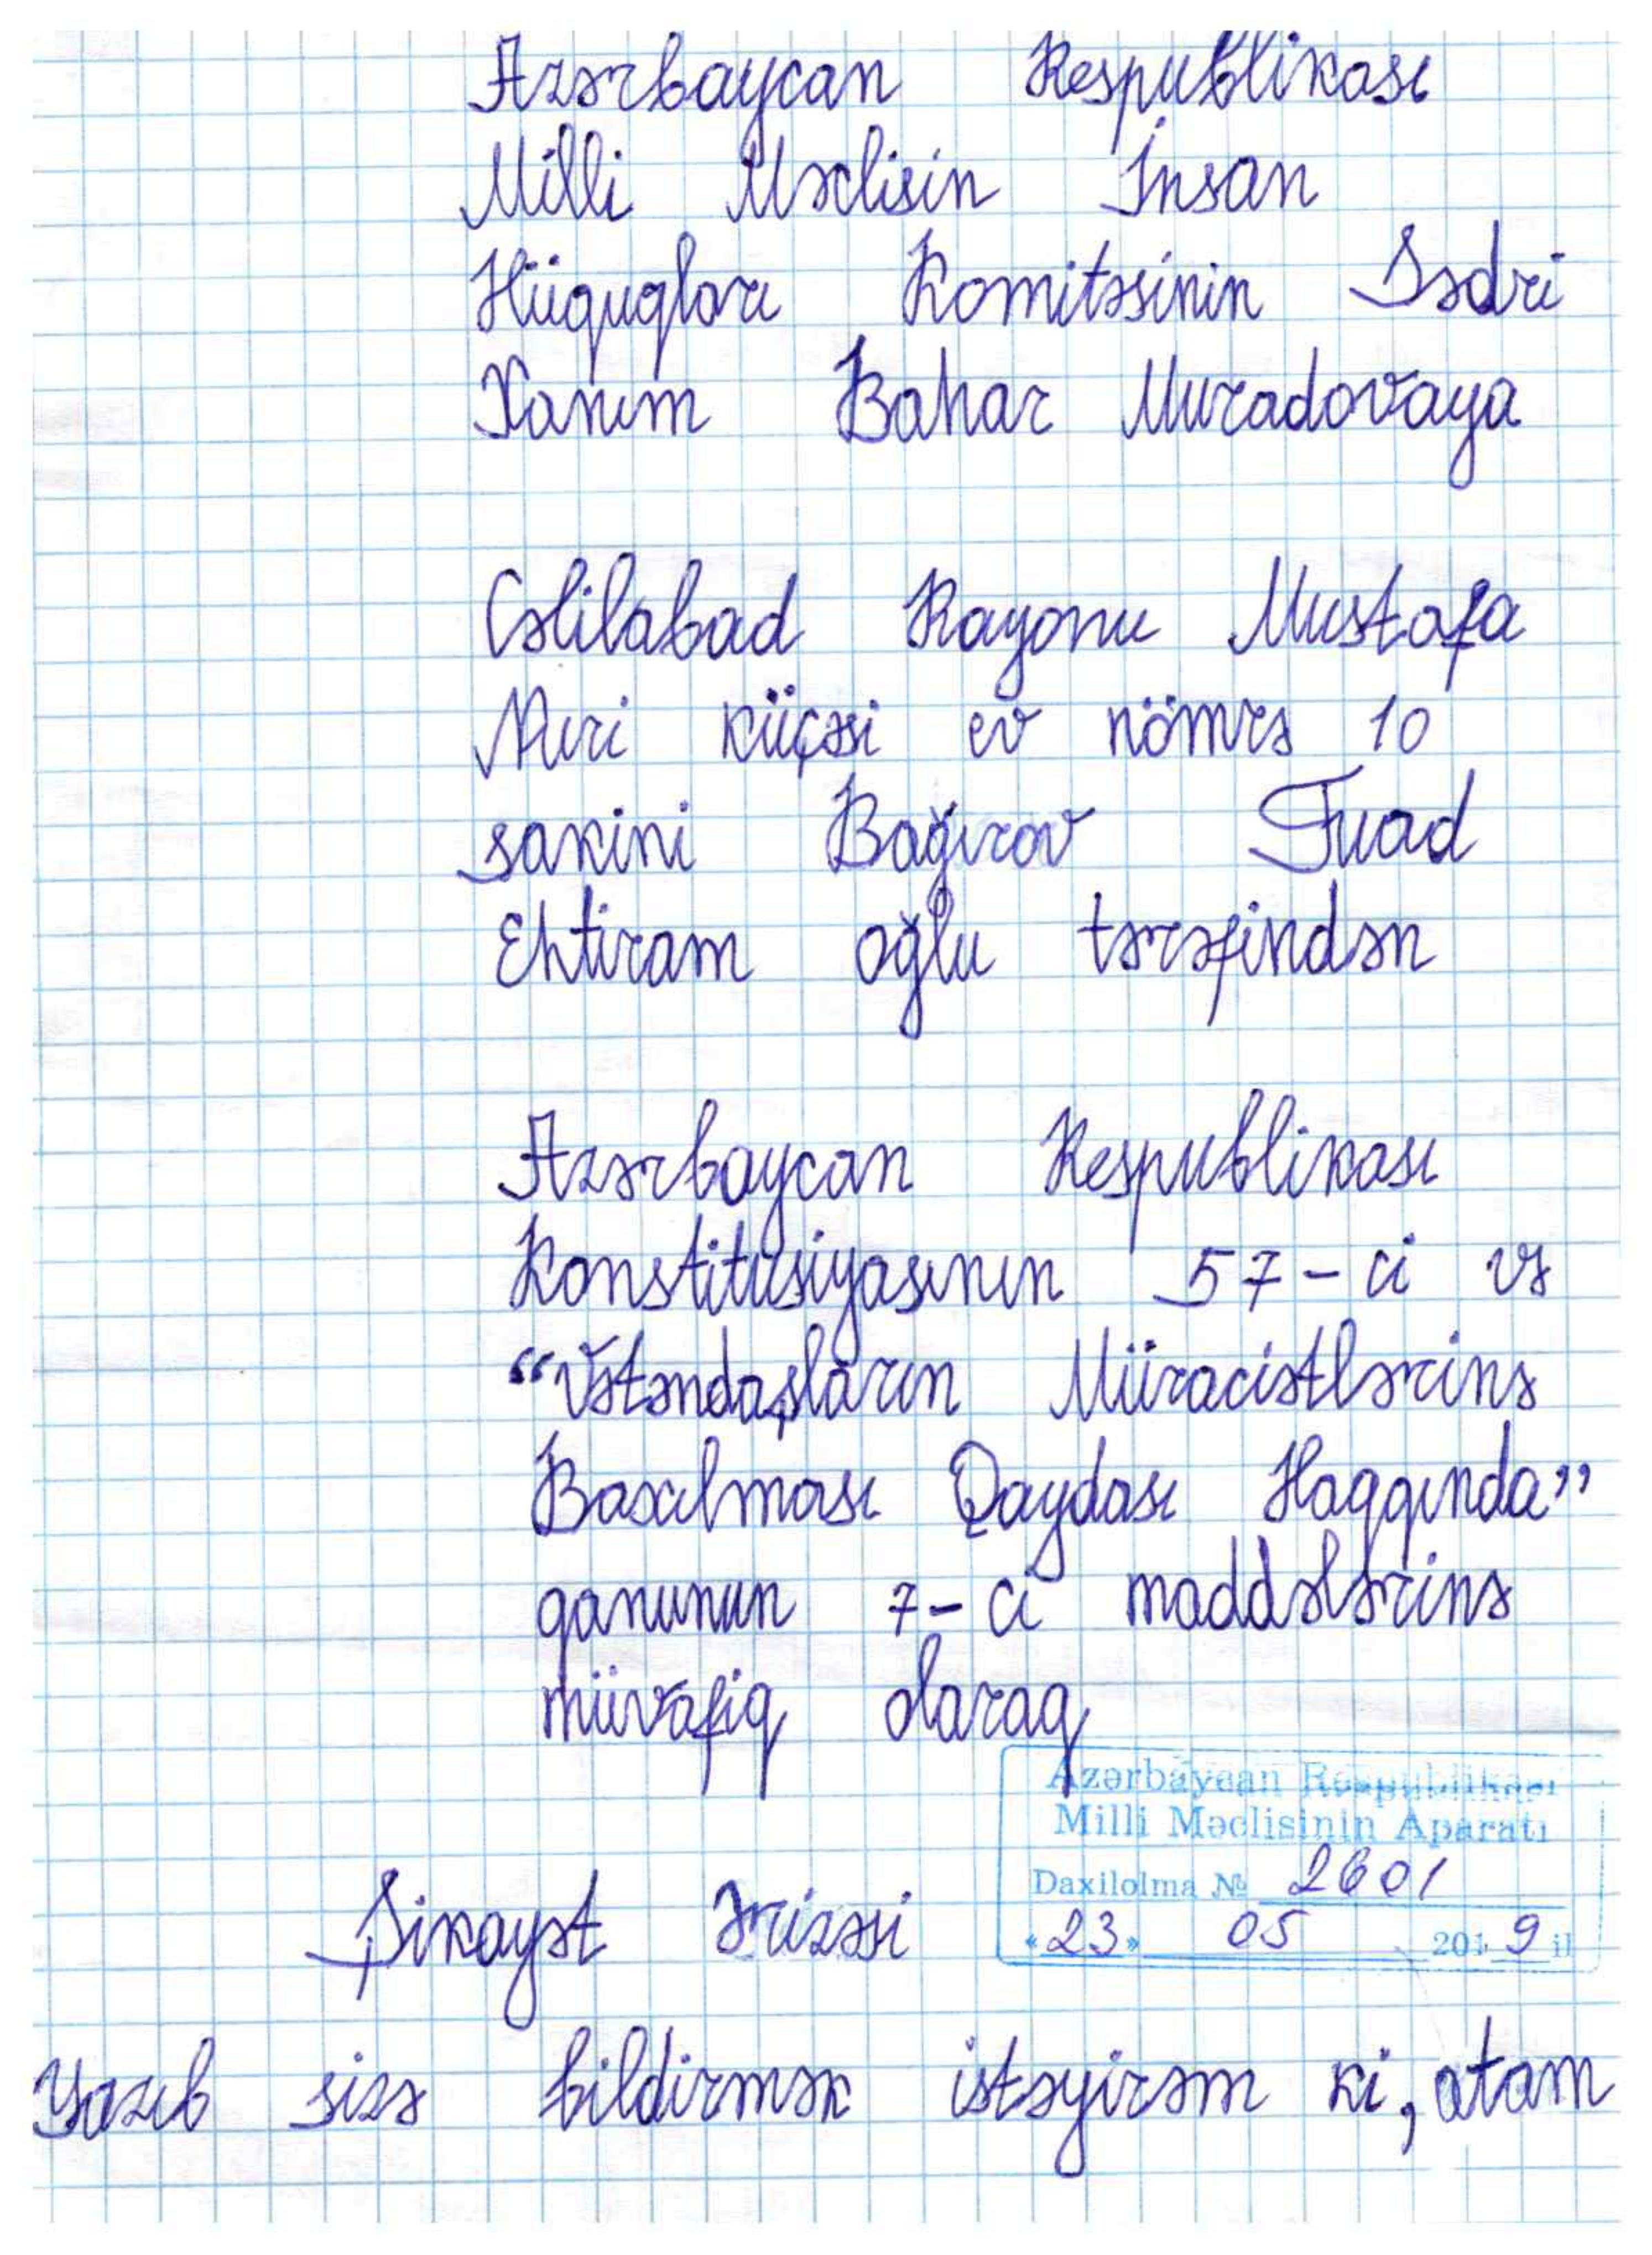 Azərbaycan Respublikası
Milli Məclisin İnsan
Hüquqları Komitəsinin Sədri
Xanım Bahar Muradovaya
Cəlilabad Rayonu Mustafa
Nuri küçəsi ev nömrə 10
sakini Bağırov Fuad
Ehtiram oğlu tərəfindən
Azərbaycan Respublikası
Konstitusiyasının 57-ci və
“Vətəndaşların Müraciətlərinə
Baxılması Qaydası Haqqında”
qanunun 7-ci maddələrinə
müvafiq olaraq
Azərbaycan Respublikası
Milli Məclisinin Aparatı
Daxilolma № 2601
«23» 05 2019 il
Şikayət Ərizəsi
Yazıb sizə bildirmək istəyirəm ki, atam